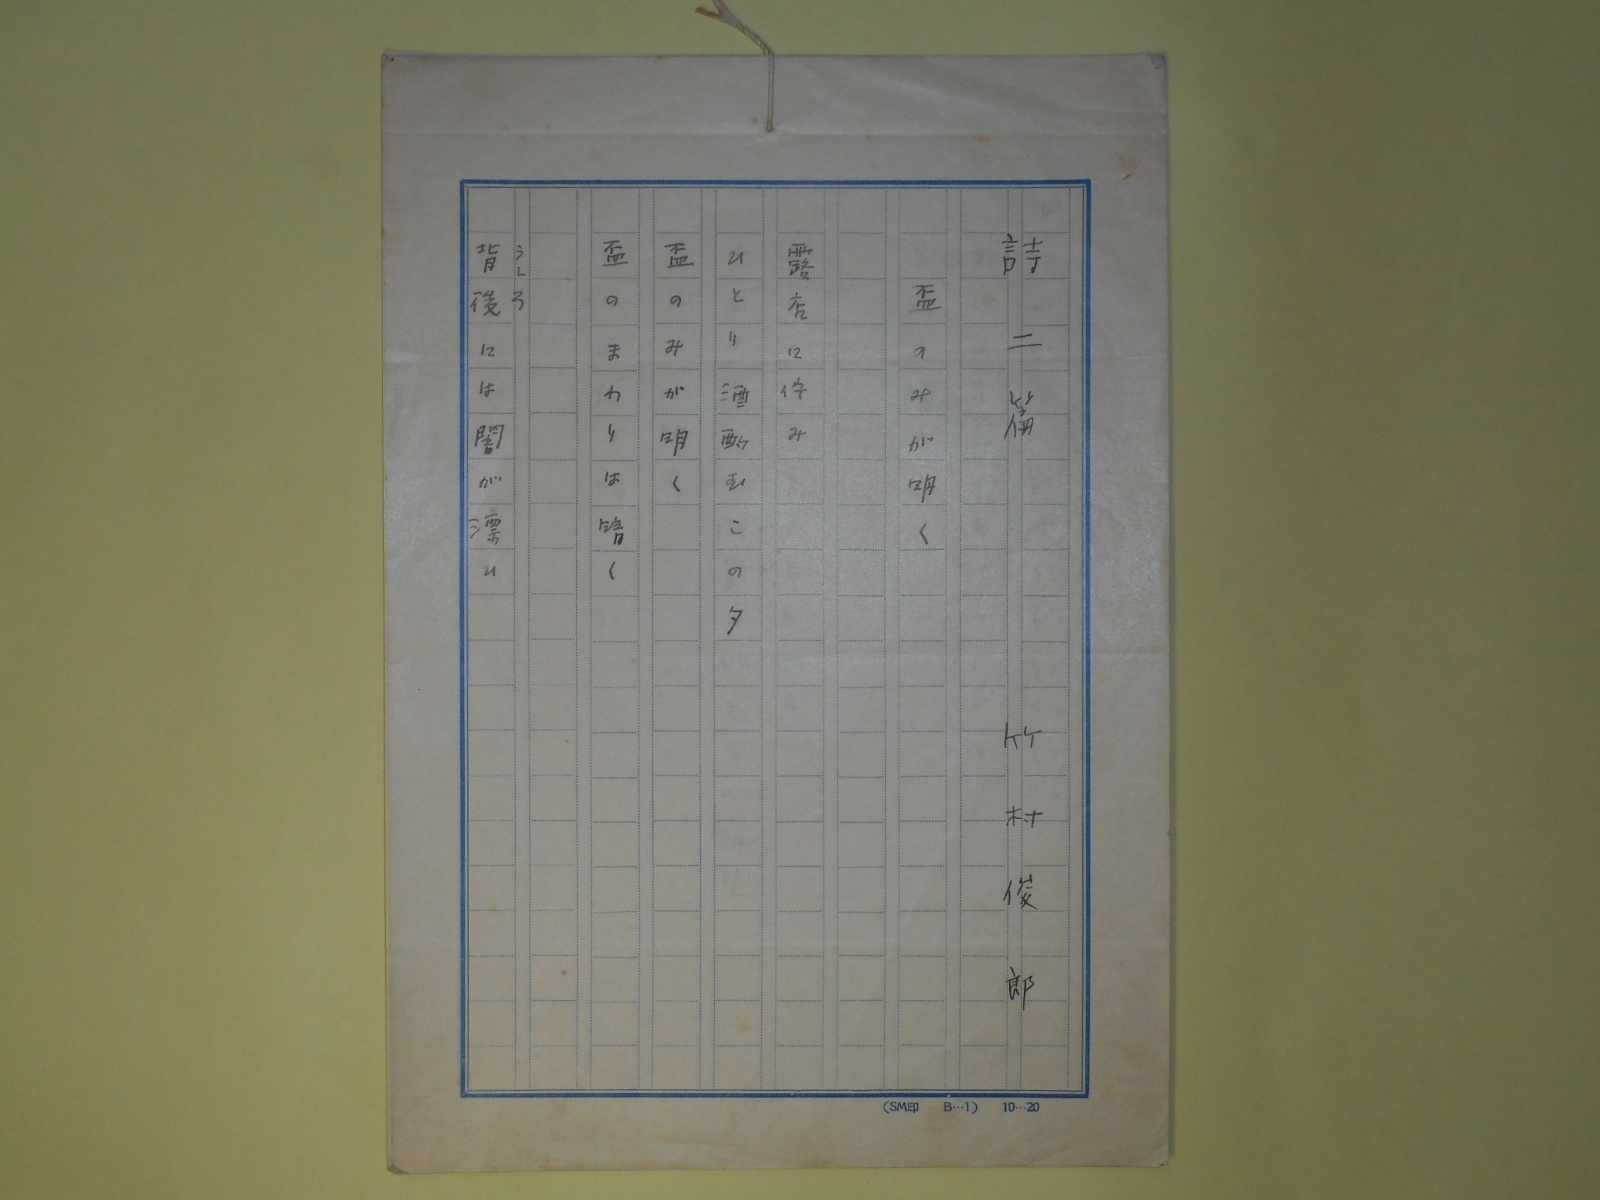 詩二篇 竹村俊郎
盃のみが明く
露店に佇み
ひとり酒酌むこの夕
盃のみが明く
盃のまわりは暗く
背後には闇が漂ひ
うしろ
(SM印 B…1) 10…20